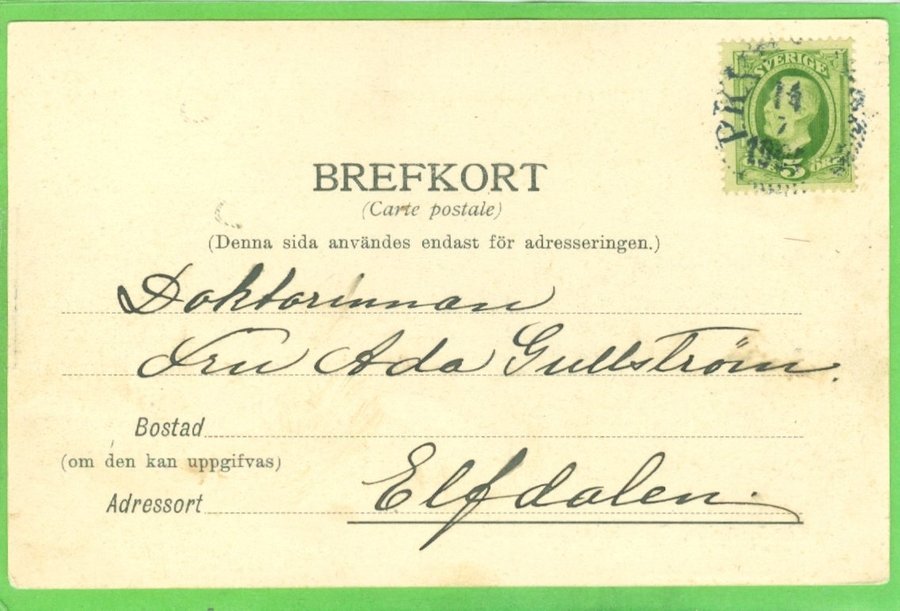 SVERIGE
PKP
14
7
5
BREFKORT
(Carte postale)
(Denna sida användes endast för adresseringen.)
Doktorinnan
Fru Ada Gullström.
Bostad
(om den kan uppgifvas)
Adressort Elfdalen.